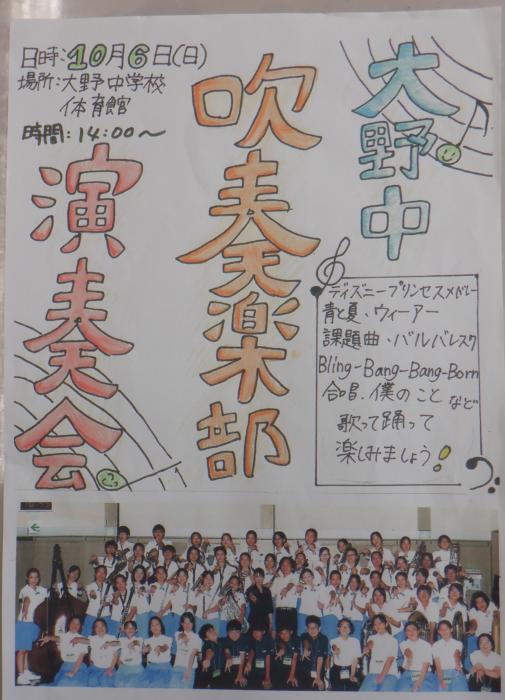 大野中
吹奏楽部
演奏会
日時:10月6日(日)
場所:大野中学校
体育館
時間:14:00〜
ディズニープリンセスメドレー
青と夏、ウィーアー
課題曲・バルバレスク
Bling-Bang-Bang-Born
合唱.僕のこと など
歌って踊って
楽しみましょう!